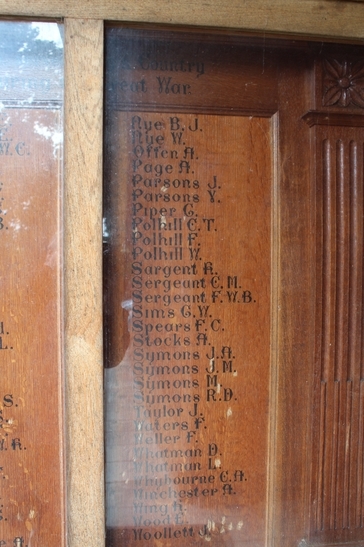 Country
War
Nye B. J.
Nye W.
Offen A.
Page A.
Parsons J.
Parsons Y.
Piper G.
Polhill C.T.
Polhill F.
Polhill W.
Sargent R.
Sergeant C.M.
Sergeant F.W.B.
Sims G.W.
Spears F.C.
Stocks A.
Symons J.A.
Symons J.M.
Symons M.
Symons R.D.
Taylor J.
Waters F.
Weller F.
Whatman D.
Whatman L.
Whybourne C.A.
Winchester A.
Woollett J.